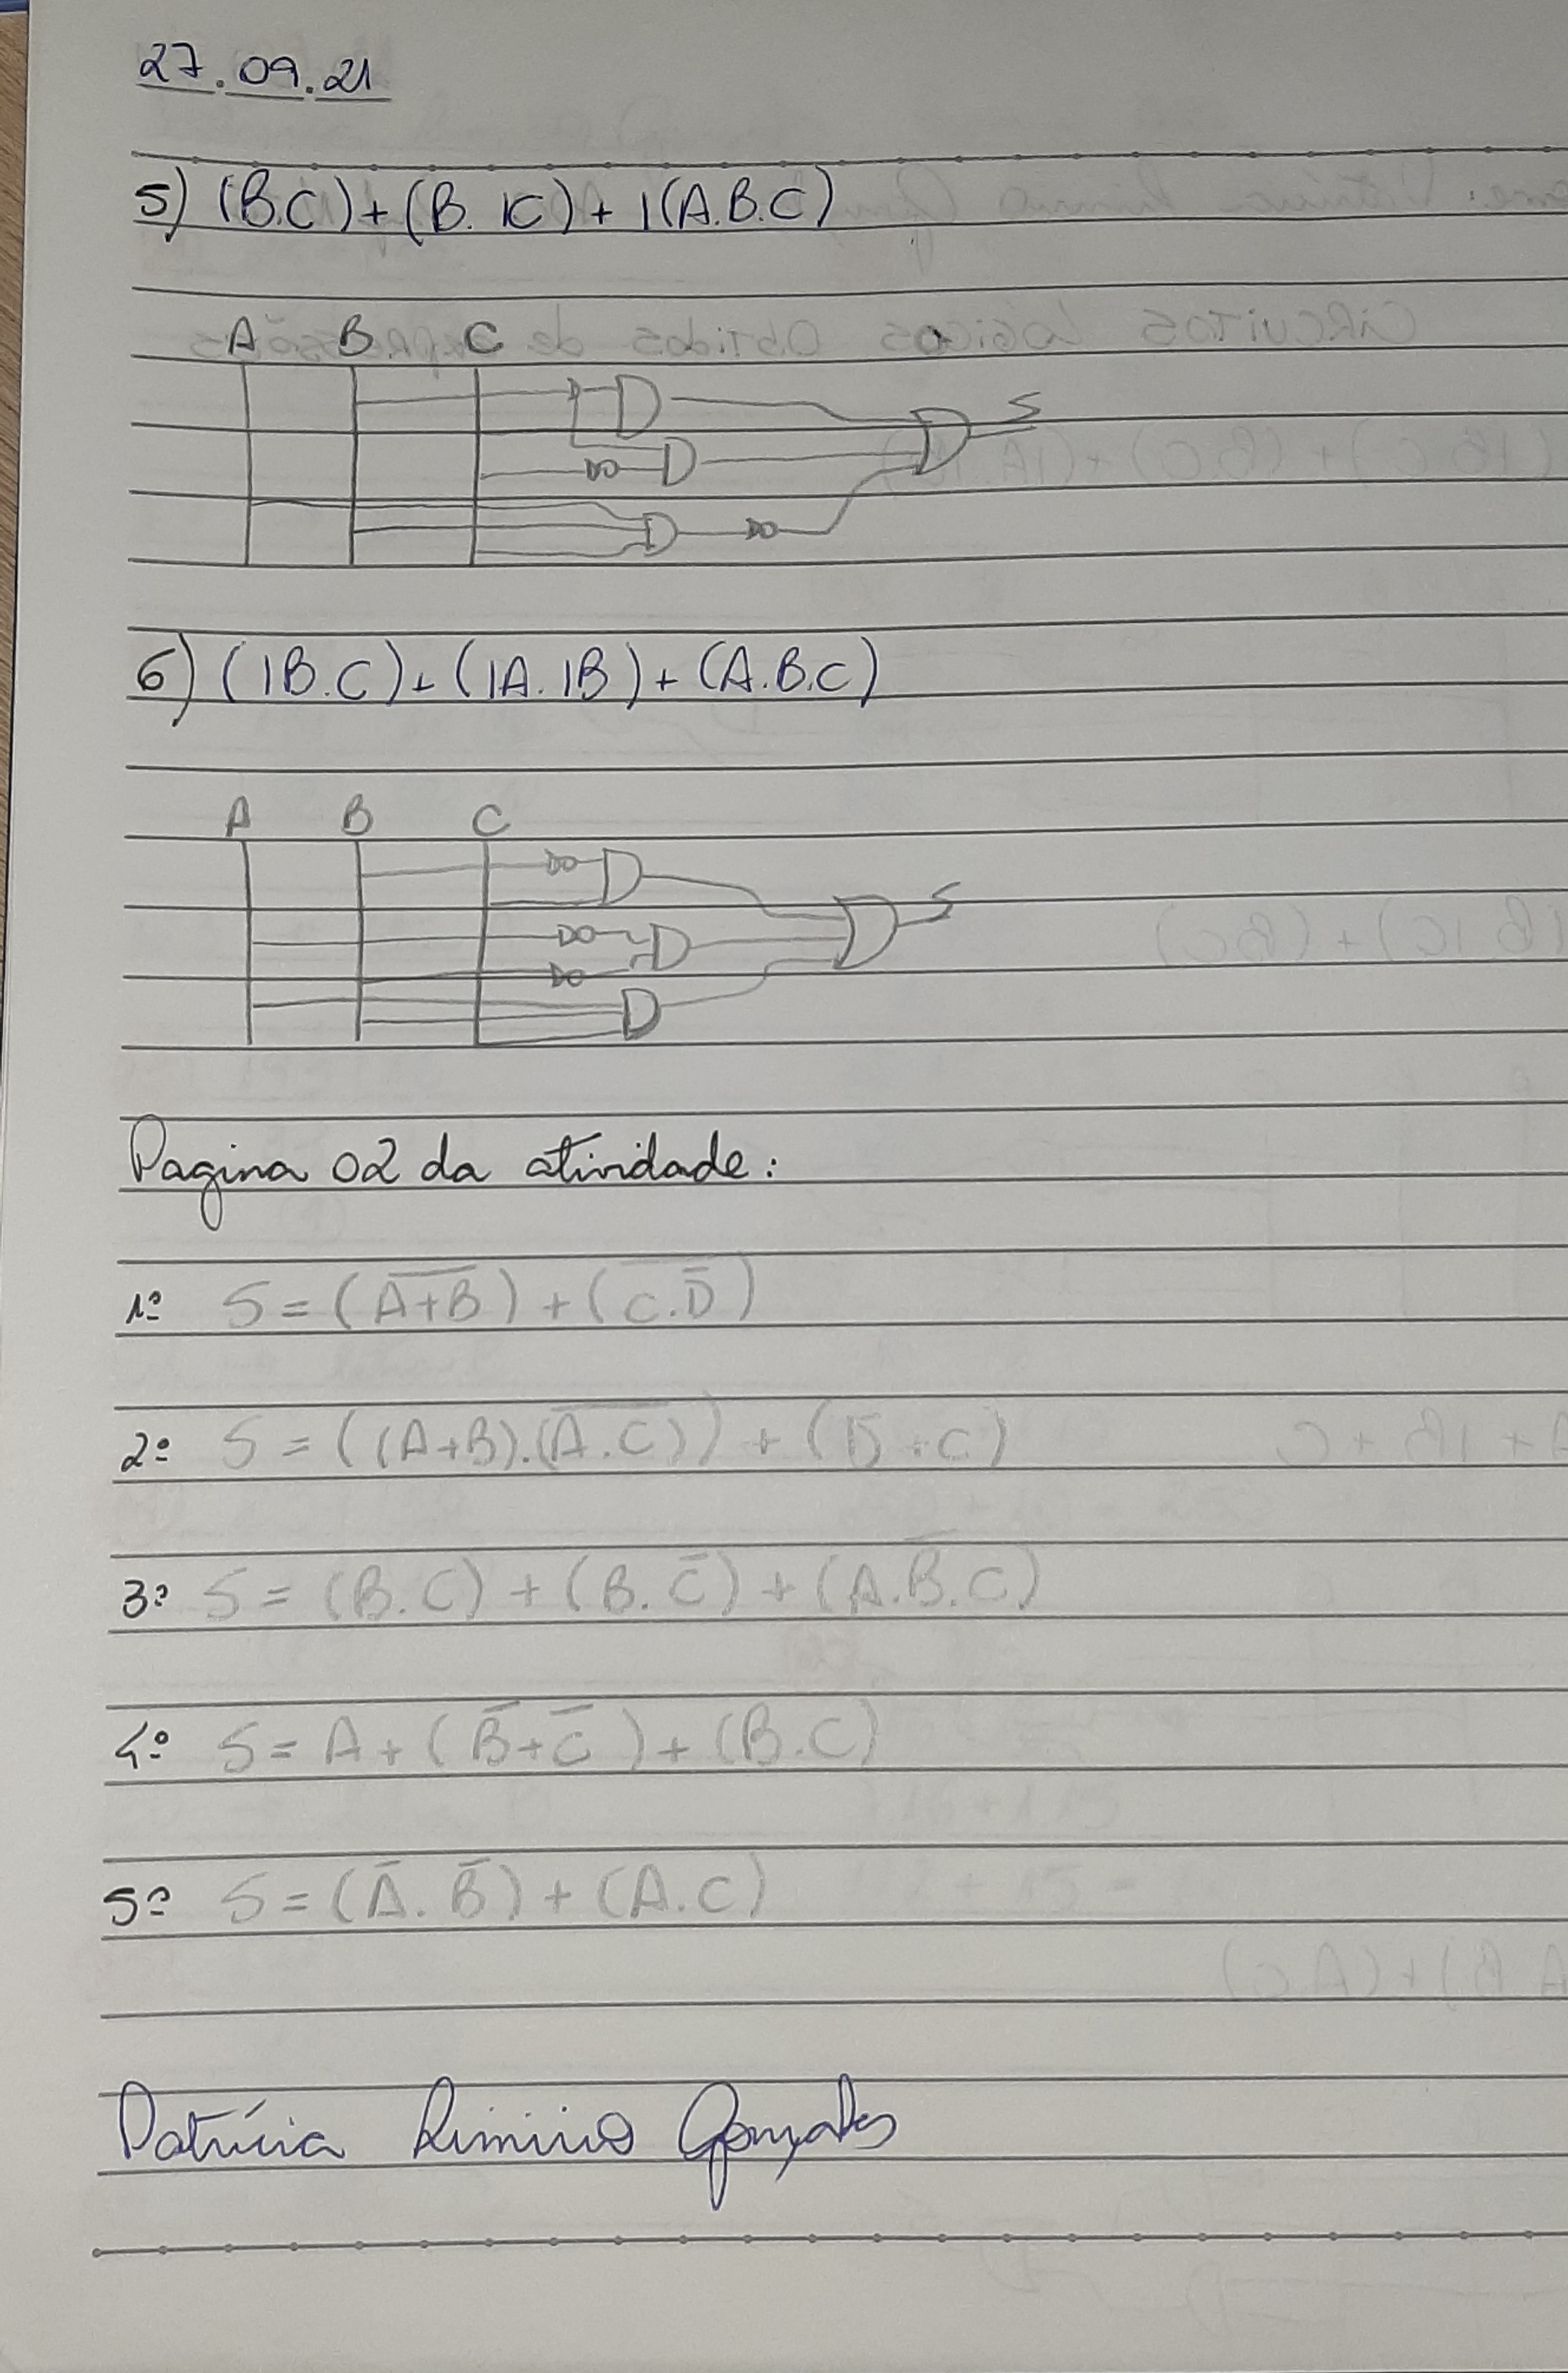 27.09.21
5) (B.C)+(B.|C)+|(A.B.C)
A B C
S
6) (|B.C)+(|A.|B)+(A.B.C)
A B C
S
Pagina 02 da atividade:
1º S = (A̅+̅B̅) + (C̅.̅D̅)
2º S = ((A+B).(A̅.̅C̅)) + (B̅+C)
3º S = (B.C) + (B.C̅) + (A.B̅.C)
4º S = A + (B̅+C̅) + (B.C)
5º S = (A̅.B̅) + (A.C)
Gonçales